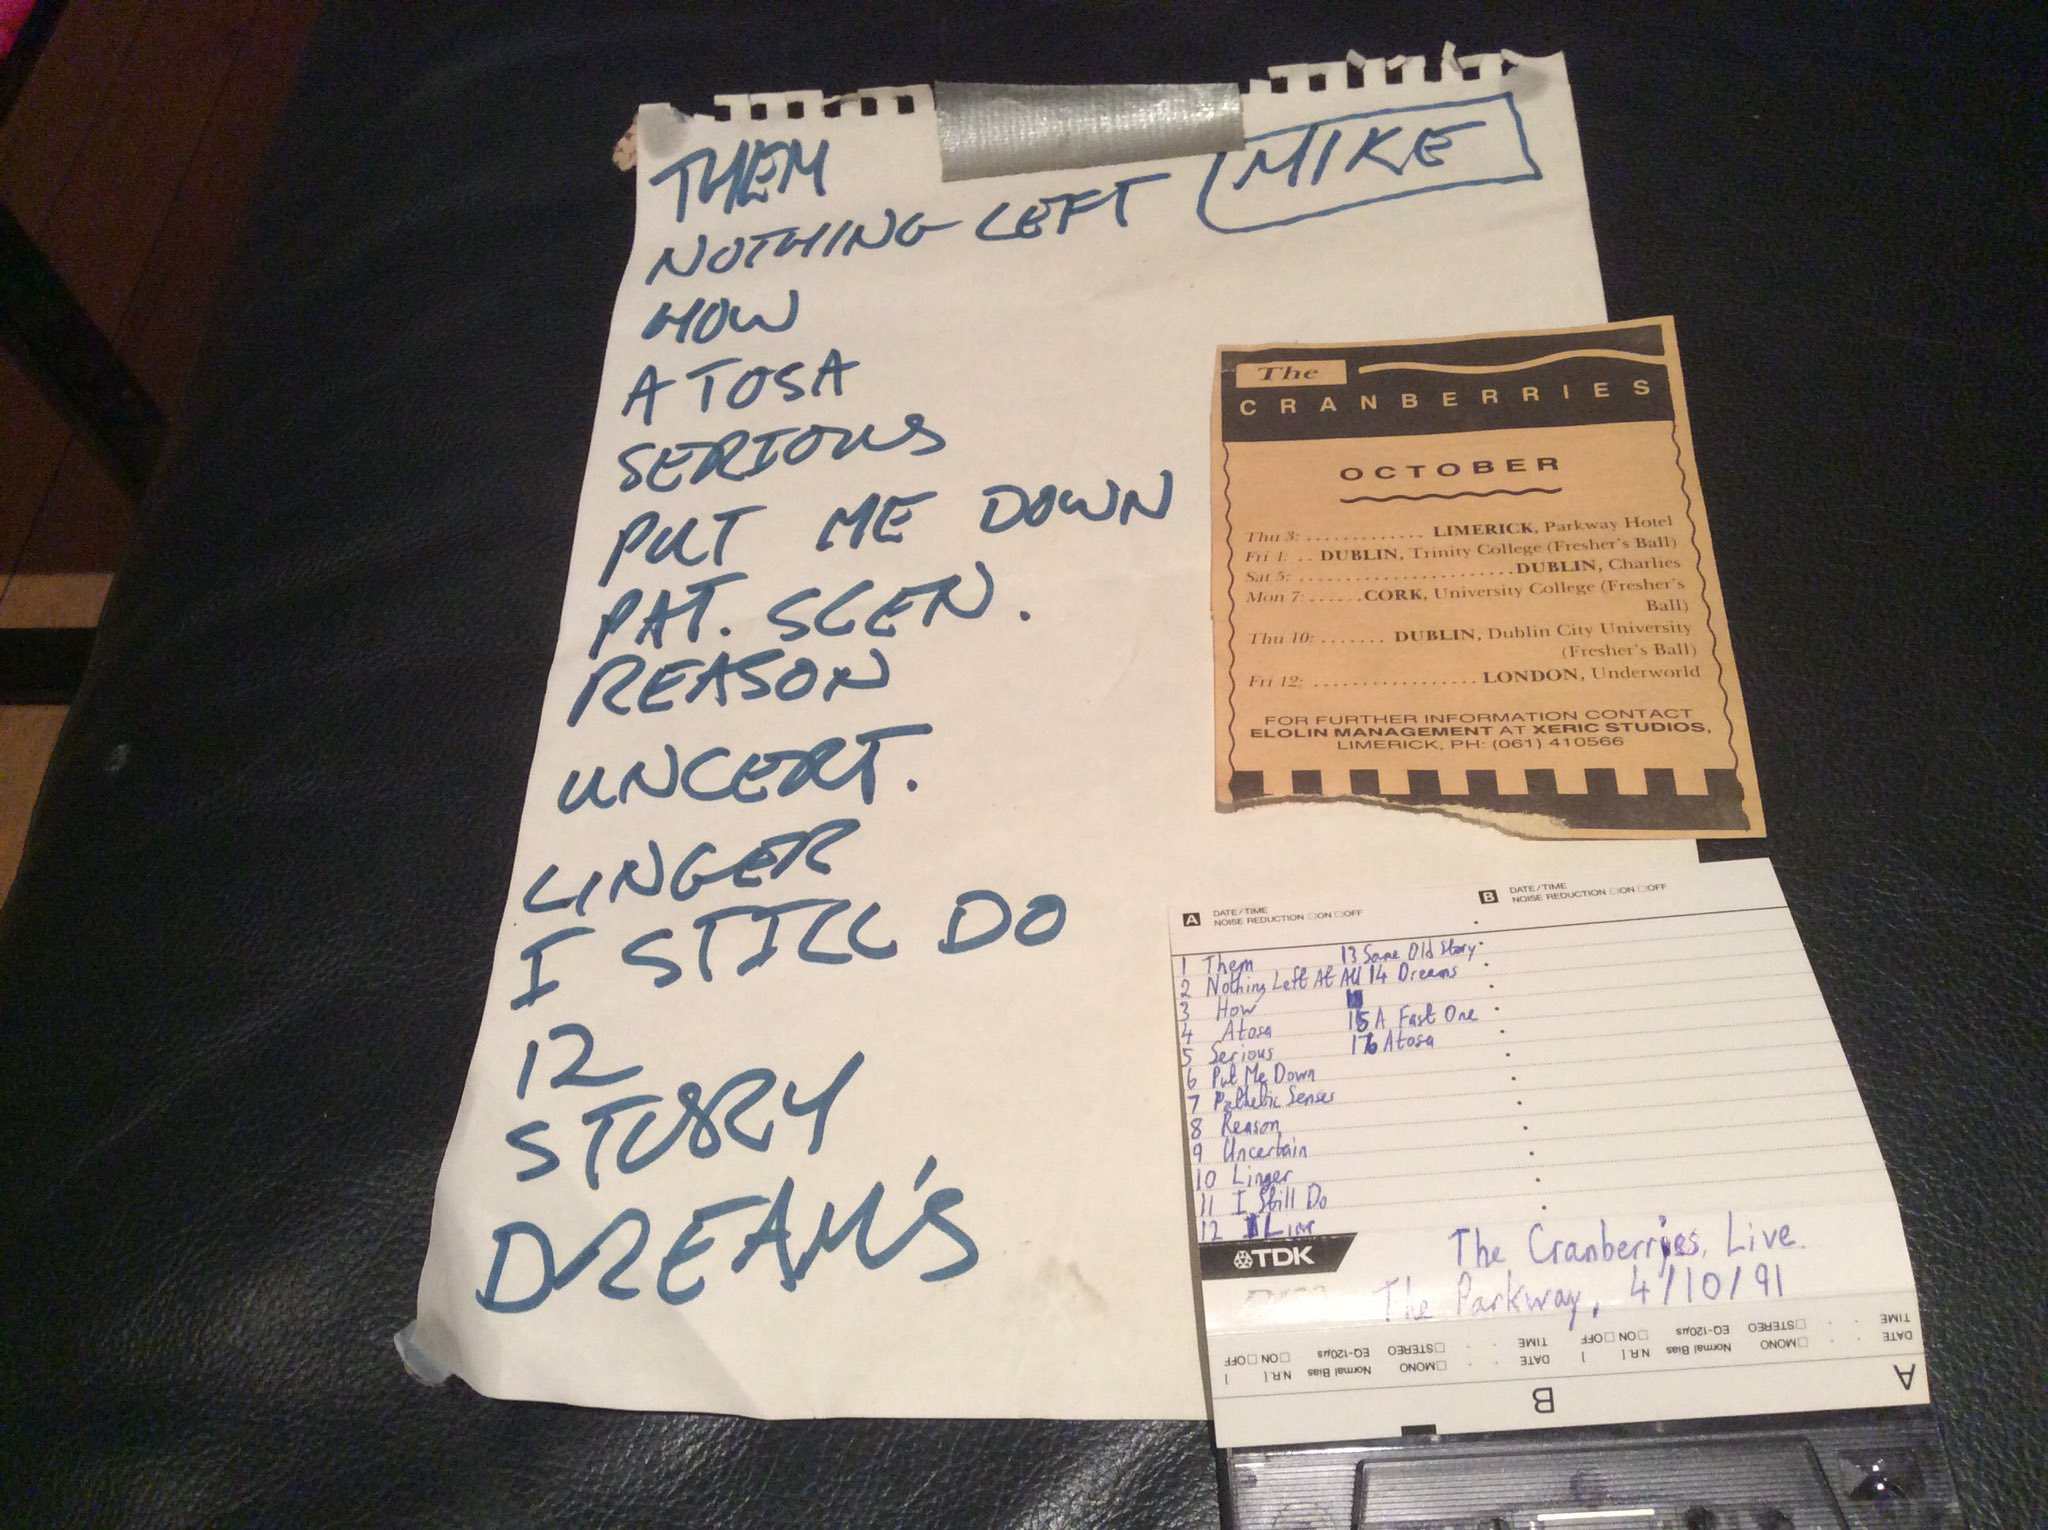 THEM
NOTHING LEFT
MIKE
HOW
ATOSA
SERIOUS
PUT ME DOWN
PAT. SCEN.
REASON
UNCERT.
LINGER
I STILL DO
12
STORY
DREAM'S
The
CRANBERRIES
OCTOBER
Thu 3: ............. LIMERICK, Parkway Hotel
Fri 4: .. DUBLIN, Trinity College (Fresher's Ball)
Sat 5: ........................DUBLIN, Charlies
Mon 7: ......CORK, University College (Fresher's
Ball)
Thu 10: ....... DUBLIN, Dublin City University
(Fresher's Ball)
Fri 12: ................. LONDON, Underworld
FOR FURTHER INFORMATION CONTACT
ELOLIN MANAGEMENT AT XERIC STUDIOS,
LIMERICK, PH: (061) 410566
A DATE/TIME
NOISE REDUCTION □ON □OFF
B DATE/TIME
NOISE REDUCTION □ON □OFF
1 Them 13 Same Old Story
2 Nothing Left At All 14 Dreams
3 How
4 Atosa 15 A Fast One
5 Serious 16 Atosa
6 Put Me Down
7 Pathetic Senses
8 Reason
9 Uncertain
10 Linger
11 I Still Do
12 Liar
TDK
The Cranberries, Live.
The Parkway, 4/10/91
DATE
TIME
□MONO
□STEREO
Normal Bias
EQ-120µs
N.R.
□ON □OFF
DATE
TIME
□MONO
□STEREO
Normal Bias
EQ-120µs
N.R.
□ON □OFF
A
B